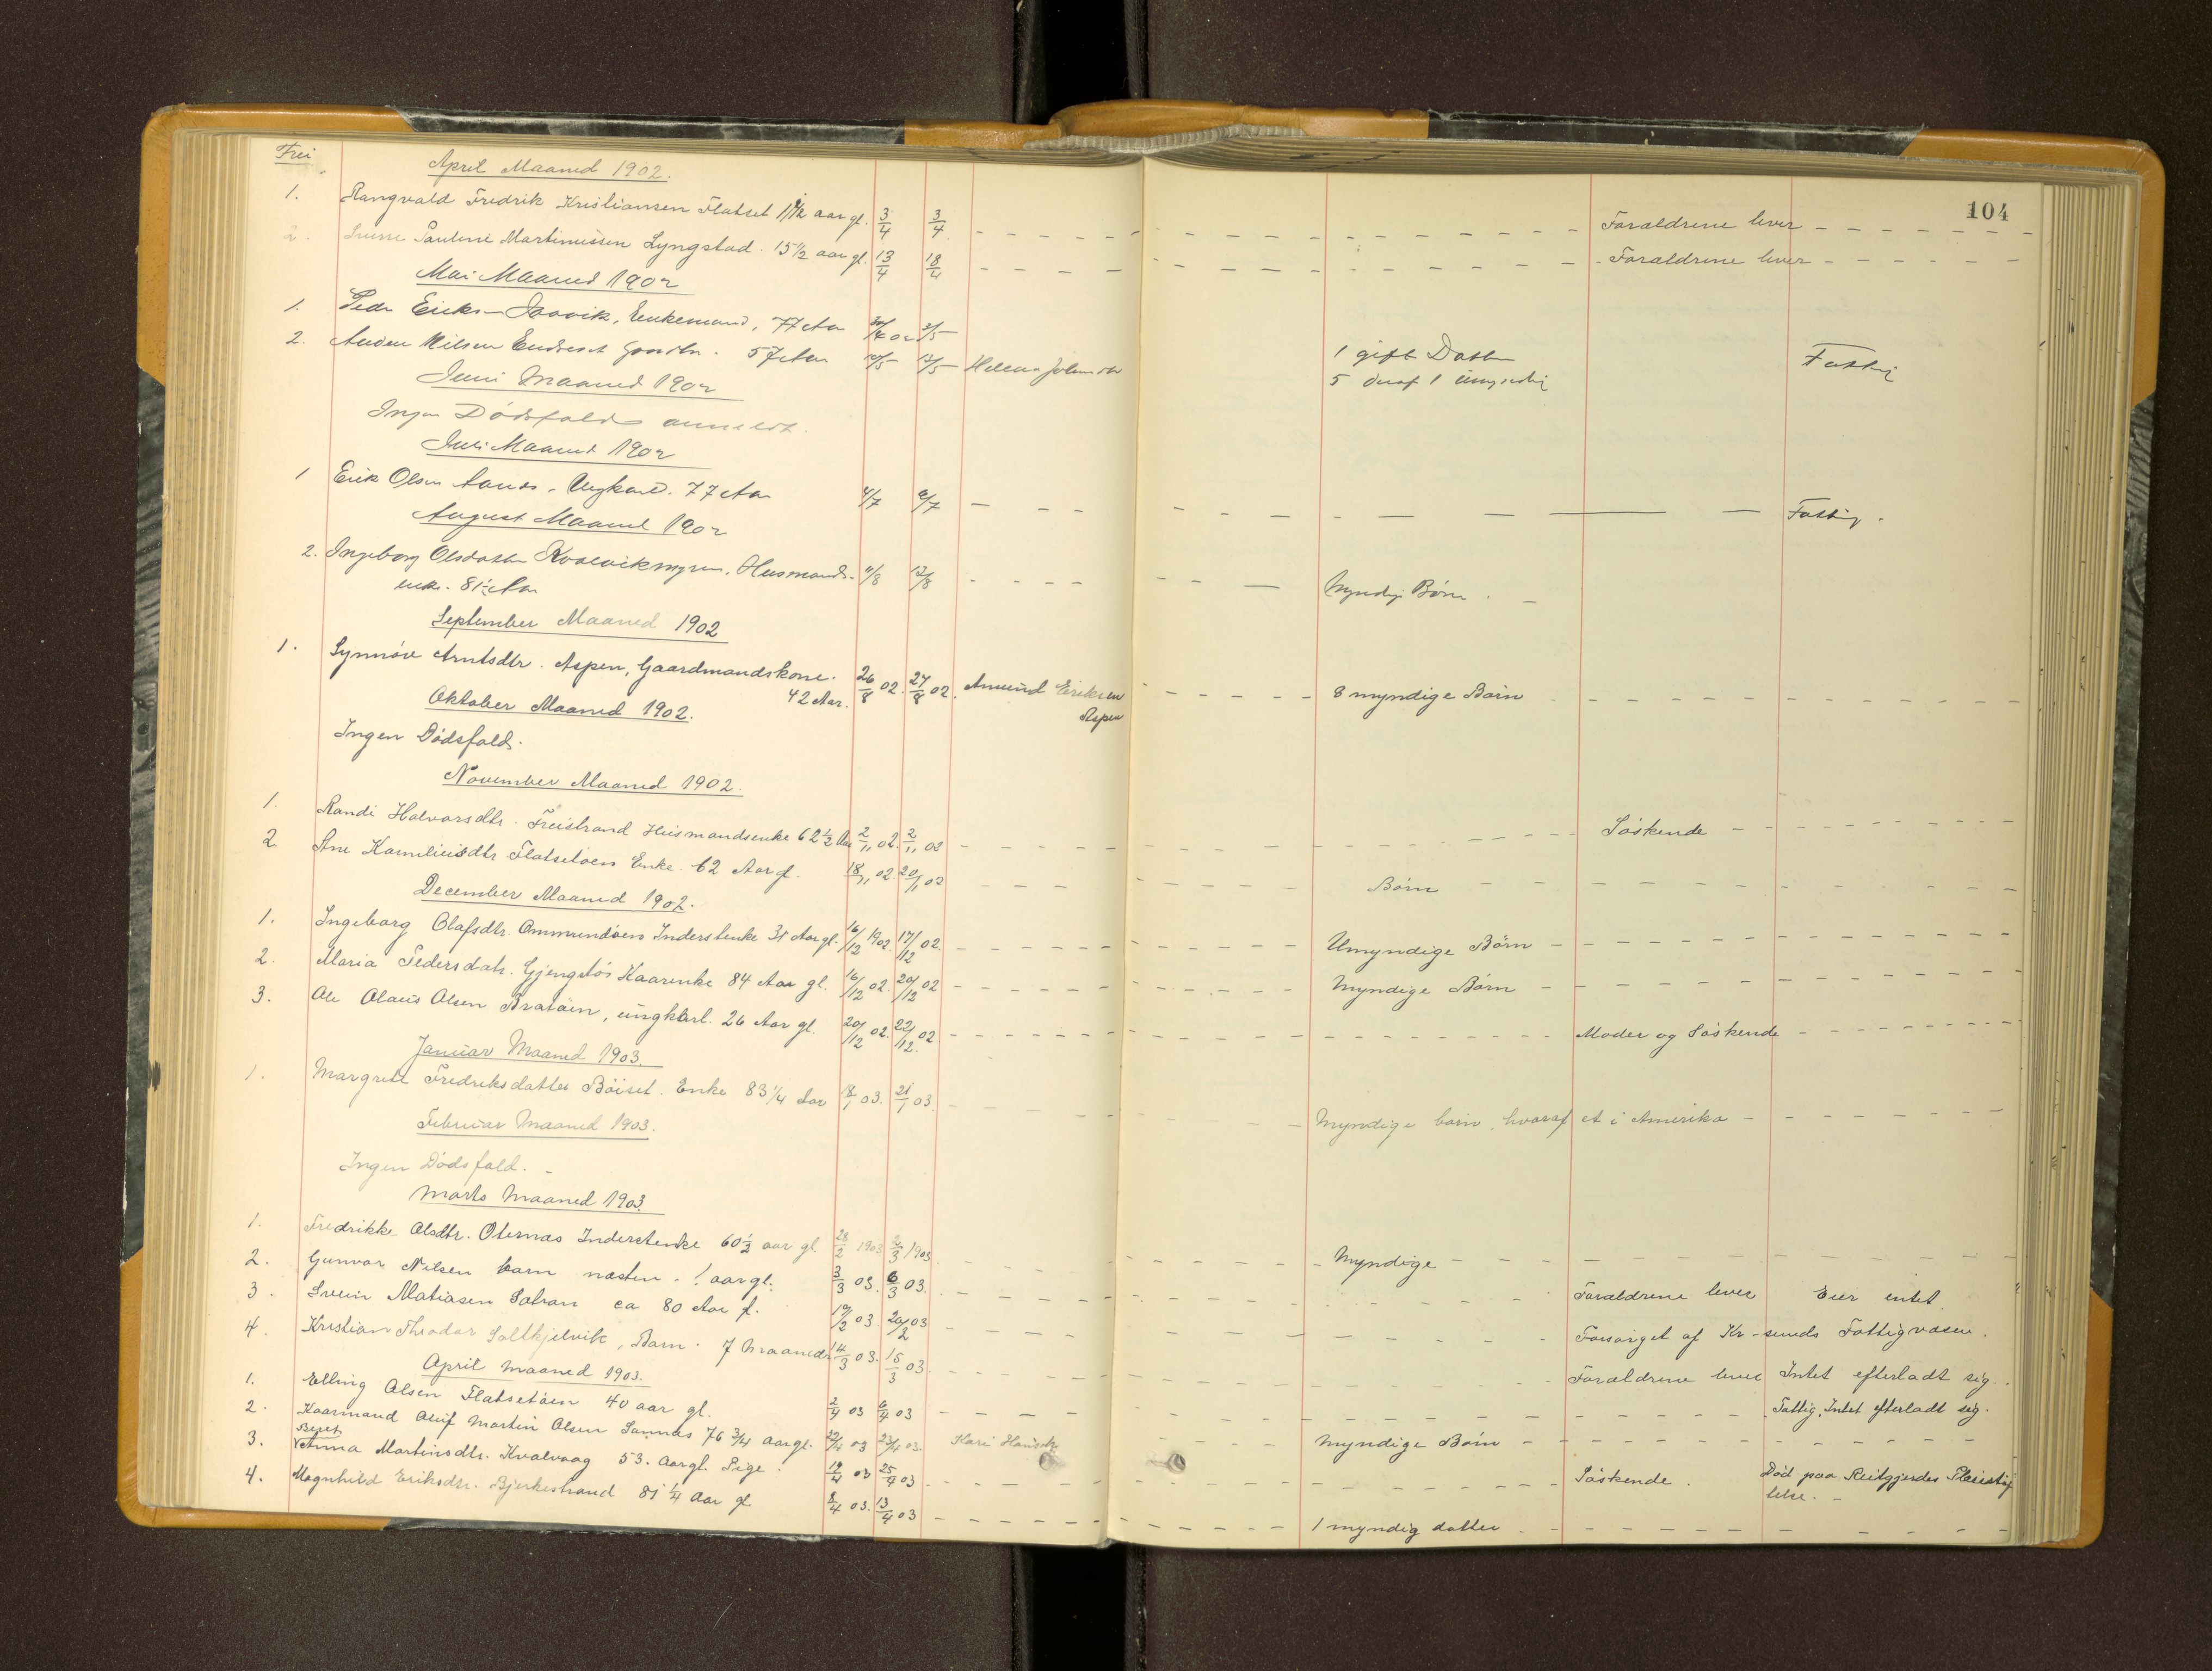 104
Frei
April Maaned 1902.
1. Rangvald Fredrik Kristiansen Flatset 1 1/2 aar gl. 3/4 3/4 Foraldrene lever
2. Pauline Martinussen Lyngstad. 15 1/2 aar gl. 13/4 18/4 Foraldrene lever
Mai Maaned 1902
1. Peder Eriks- Enkemand, 77 Aar 30/4 02 3/5 1 gift Datter Fattig
2. Nilsen 57 Aar 10/5 12/5 Helena 5 deraf 1 umyndig
Juni Maaned 1902
Ingen Dödsfald anmeldt.
Juli Maaned 1902
1 Erik Olsen Ungkarl. 77 Aar 4/7 9/7 Fattig.
August Maaned 1902
2. Ingeborg Olsdatter Kvalvikmyren. Husmands- 4/8 12/8 Myndige Börn.
enke. 81 1/2 Aar
September Maaned 1902
1. Synnöve Arntsdtr. Aspen, Gaardmandskone. 26/8 02. 27/8 02. Amund Eriksen 8 myndige Börn
42 Aar. Aspen
Oktober Maaned 1902.
Ingen Dödsfald.
November Maaned 1902.
1. Randi Halvorsdtr. Freistrand Husmandsenke 62 1/2 Aar 2/11 02. 2/11 02 Söskende
2 Ane Korneliusdtr Flatsetöen Enke. 62 Aar gl. 18/11 02. 20/11 02 Börn
December Maaned 1902.
1. Ingeborg Olafsdtr. Ommundöen Inderstenke 31 Aar gl. 16/12 1902 17/12 02. Umyndige Börn
2. Maria Pedersdatr. Gjengstös Kaarenke 84 Aar gl. 16/12 02. 20/12 02 Myndige Börn
3. Ole Olaus Olsen Bratöen, ungkarl. 26 Aar gl. 20/12 02. 22/12 02 Moder og Söskende
Januar Maaned 1903.
1. Margrete Fredriksdatter Böiset. Enke 83 1/4 Aar 18/1 03. 21/1 03. Myndige börn, hvoraf et i Amerika
Februar Maaned 1903.
Ingen Dödsfald.
Marts Maaned 1903.
1. Fredrikke Olsdtr. Oternas Inderstenke 60 1/2 aar gl. 28/2 1903 2/3 1903 Myndige
2. Gunvor Nilsen barn næsten 1 aar gl. 3/3 03. 6/3 03. Foraldrene lever Eier intet.
3. Svein Matiasen ca 80 Aar gl. 19/2 03. 20/2 03 Forsörget af Kr-sunds Fattigvasen.
4. Kristian Theodor Saltkjelvik, Barn. 7 Maaneder 14/3 03. 15/3 03. Foraldrene lever Intet efterladt sig.
April Maaned 1903.
1. Elling Olsen Flatsetöen 40 aar gl. 2/4 03 6/4 03 Fattig, Intet efterladt sig.
2. Kaarmand Oluf Martin Olsen Sannas 76 3/4 aar gl. 22/4 03 23/4 03. Kari Hansdtr. Myndige Börn
Beret
3. Anna Martinsdtr. Kvalvaag 53. aar gl. Pige. 19/4 03 25/4 03 Söskende. Död paa Reitgjerdes Pleiestif
telse.
4. Magnhild Eriksdtr. Bjerkestrand 81 1/4 aar gl. 8/4 03. 13/4 03 1 myndig datter